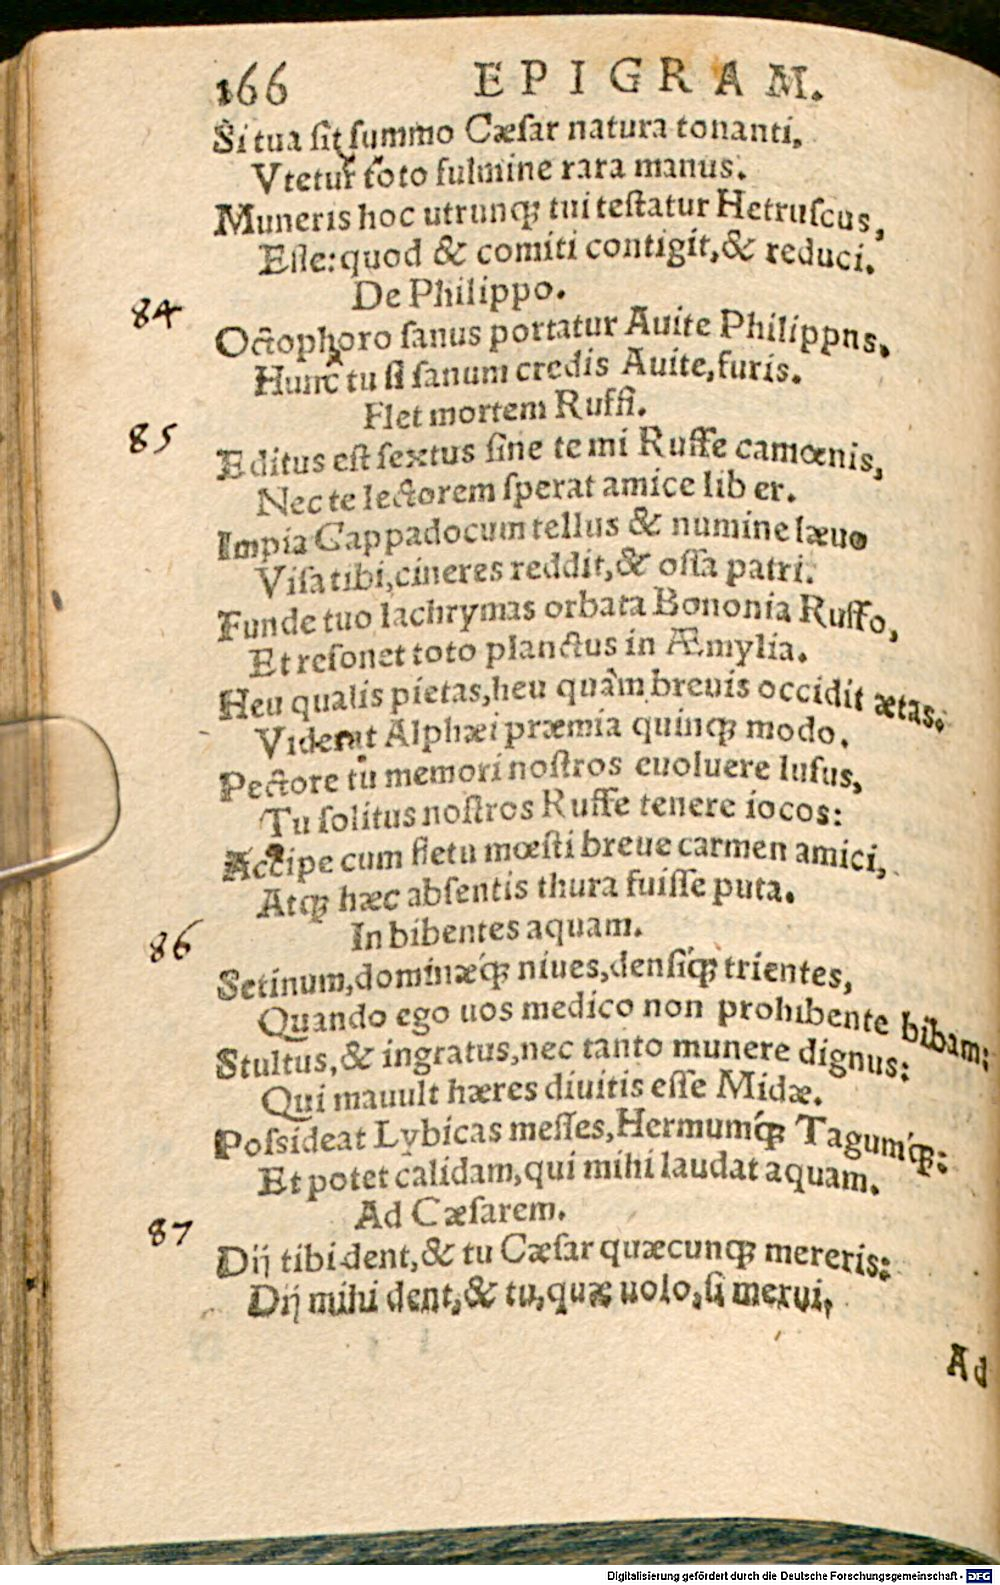 166 EPIGRAM.
Si tua sit summo Cæsar natura tonanti,
Vtetur toto fulmine rara manus.
Muneris hoc utrunq; tui testatur Hetruscus,
Esse: quod & comiti contigit, & reduci.
De Philippo.
84
Octophoro sanus portatur Auite Philippns.
Hunc tu si sanum credis Auite, furis.
Flet mortem Ruffi.
85
Editus est sextus sine te mi Ruffe camœnis,
Nec te lectorem sperat amice lib er.
Impia Cappadocum tellus & numine læuo
Visa tibi, cineres reddit, & ossa patri.
Funde tuo lachrymas orbata Bononia Ruffo,
Et resonet toto planctus in Æmylia.
Heu qualis pietas, heu quàm breuis occidit ætas.
Viderat Alphæi præmia quinq; modo.
Pectore tu memori nostros euoluere lusus,
Tu solitus nostros Ruffe tenere iocos:
Accipe cum fletu mœsti breue carmen amici,
Atq; hæc absentis thura fuisse puta.
In bibentes aquam.
86
Setinum, dominæq́; niues, densiq́; trientes,
Quando ego uos medico non prohibente bibam:
Stultus, & ingratus, nec tanto munere dignus:
Qui mauult hæres diuitis esse Midæ.
Possideat Lybicas messes, Hermumq́; Tagumq́;:
Et potet calidam, qui mihi laudat aquam.
Ad Cæsarem.
87
Dij tibi dent, & tu Cæsar quæcunq; mereris:
Dij mihi dent, & tu, quæ uolo, si merui,
Ad
Digitalisierung gefördert durch die Deutsche Forschungsgemeinschaft - DFG